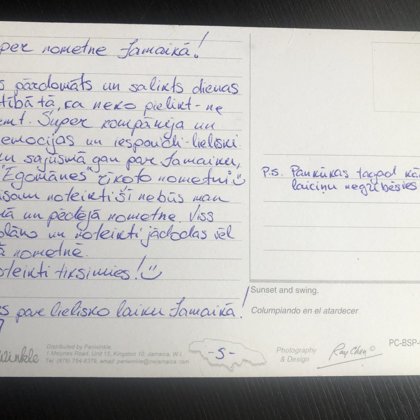 uper nometne Jamaikā!
s pārdomāts un salikts dienas
tībā tā, ka neko pielikt - ne
emt. Super kompānija un
emocijas un iespaidi - lieliski.
u sajūsmā gan par Jamaiku,
"Egomānes" rīkoto nometni
šam noteikti šī nebūs man
ā un pēdējā nometne. Viss
plāns un noteikti jādodas vēl
ā nometnē.
oteikti tiksimies!
s par lielisko laiku Jamaikā!
P.S. Pankūkas tagad kā
laiciņu negribēsies
Sunset and swing.
Columpiando en el atardecer.
Distributed by Periwinkle
1 Merjnes Road, Unit 13, Kingston 10, Jamaica, W.I.
- 5 -
Photography
& Design
Ray Chen ©
PC-BSP-